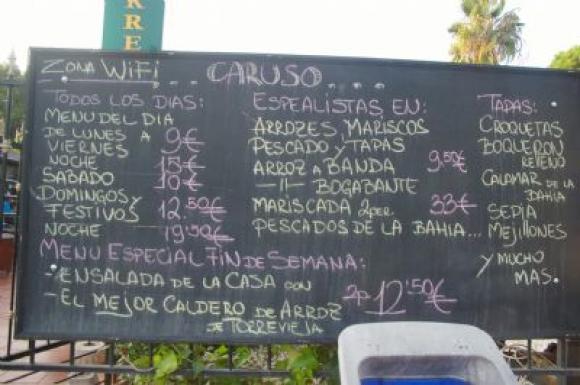 RRE
ZONA WIFI... CARUSO....
TODOS LOS DIAS:
MENU DEL DIA
DE LUNES A
VIERNES 9€
NOCHE 15€
SABADO 10€
DOMINGOS Y
FESTIVOS 12.50€
NOCHE 19'50€
ESPEALISTAS EN:
ARROZES, MARISCOS
PESCADO Y TAPAS
ARROZ A BANDA 9.50€
-11- BOGABANTE
MARISCADA 2per 33€
PESCADOS DE LA BAHIA...
TAPAS:
CROQUETAS
BOQUERON
RELLENO
CALAMAR DE LA
BAHIA
SEPIA
MEJILLONES
Y MUCHO
MAS.
MENU ESPECIAL FIN DE SEMANA:
-ENSALADA DE LA CASA CON
-EL MEJOR CALDERO DE ARROZ
DE TORREVIEJA
2p 12'50€